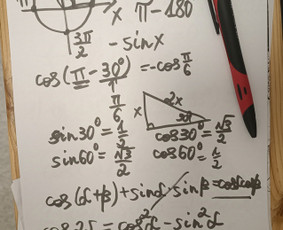 π x π-180
3π/2 - sinx
cos(π-30°)=-cos π/6
π/6
x 2x 30°
sin30°=1/2 cos30°=√3/2
sin60°=√3/2 cos60°=1/2
cos(α+β)+sinα·sinβ=cosαcosβ
cos2α=cos²α-sin²α